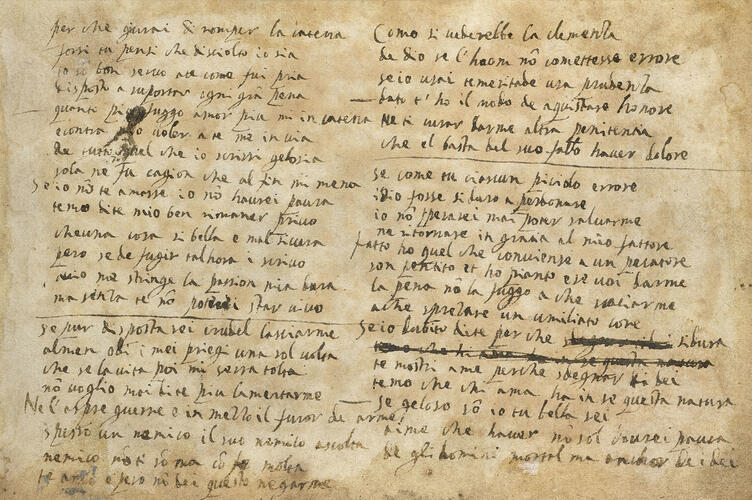 per che giurai di romper la catena
forsi tu pensi che disciolto io sia
io so bon servo a te come fui pria
disposto a suportar ogni grā pena
quanto più fuggo amor più mi in catena
e contra voler a te me in via
de tutto quel che io scrissi gelosia
sola ne fu cagion che al fin mi mena
Se io nō te amasse io nō haurei paura
temo di te mio ben rimaner privo
che una cosa si bella e mal sicura
pero se de fugir talhora i scrivo
me stringe la passion mia dura
ma senza te nō potrei star vivo
se pur disposta sei crudel lasciarme
almen odi i mei priegi una sol volta
che se la vita poi mi serra tolta
nō voglio mai di te piu lamentarme
Nell aspre guerre e in mezzo il furor de arme
spesso un nemico il suo nemico ascolta
nemico no ti sō ma cō fe molta
te amo e pero nō dei questo negarme
Como si vederebbe la clementia
de dio se l'huom nō comettesse errore
se io usai temeritade usa prudentia
dato t' ho il modo de aquistare honore
Ne ti curar darme altra penitencia
che el basta del suo fatto haver dolore
se come tu ciascun picciolo errore
idio fosse si duro a perdonare
io nō sperarei mai poter salvarme
ne ritornare in gratia al mio fattore
fatto ho quel che conviense a un pecatore
son pentito et ho pianto e se voi darme
la pena nō la fuggo a che
a che sprezare un umiliato core
Se io dubito di te per che si dura
te mostri a me perche sdegnar ti dei
temo che chi ama ha in se questa natura
se geloso sō io tu bella sei
aime che haver nō sol dourei paura
de gli homini mortal ma anchor de i dei